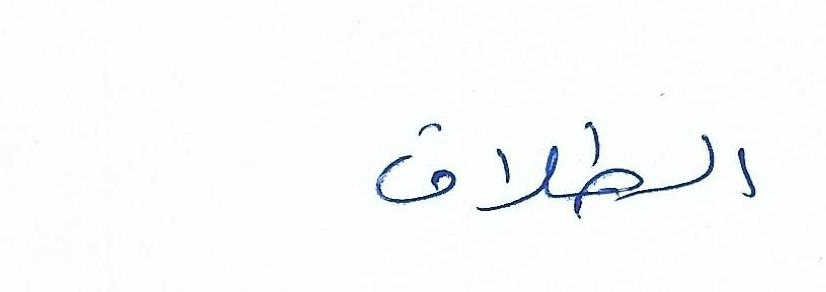 الطلاق